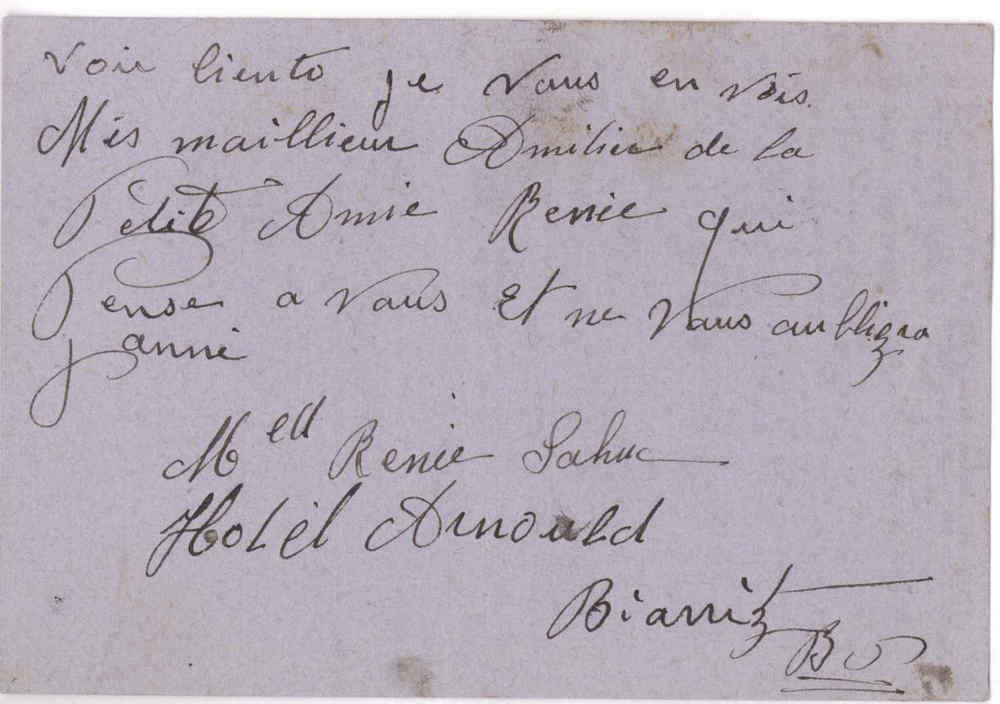 voir biento je vous en vois.
Mes maillieur Amitier de la
Petite Amie Renée qui
Pense a vous Et ne vous aubliera
jamié
Mell Renée Sahuc
Hotel Arnould
Biarritz